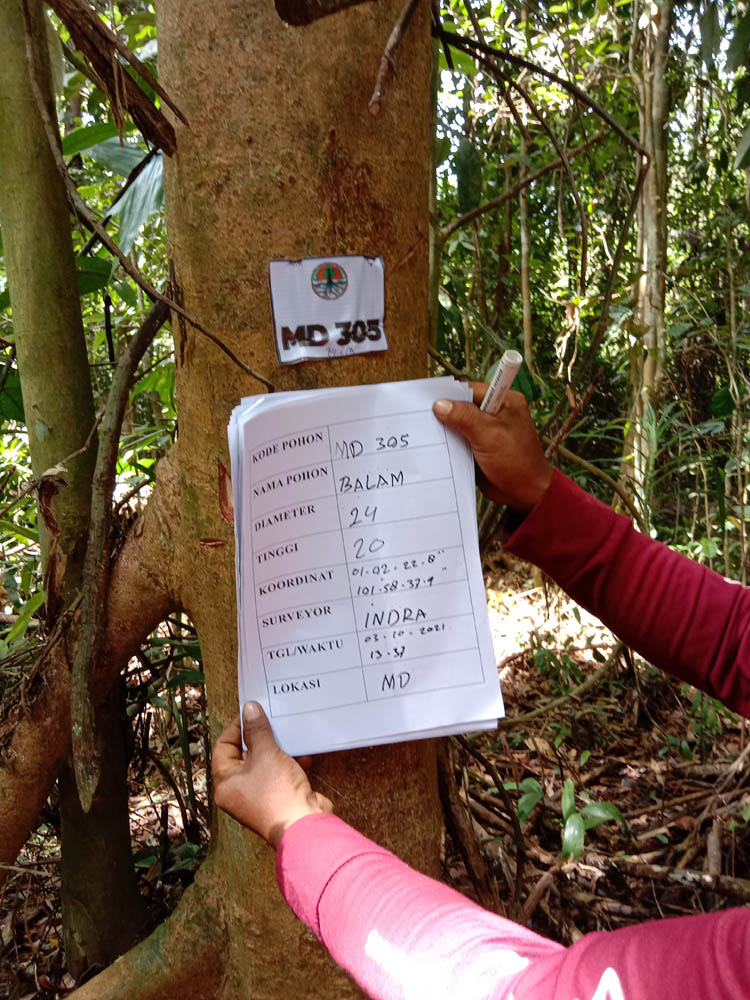 MD 305
KODE POHON MD 305
NAMA POHON BALAM
DIAMETER 24
TINGGI 20
KOORDINAT 01.02.22.8"
101.58.37.9"
SURVEYOR INDRA
TGL/WAKTU 03.10.2021
13.37
LOKASI MD